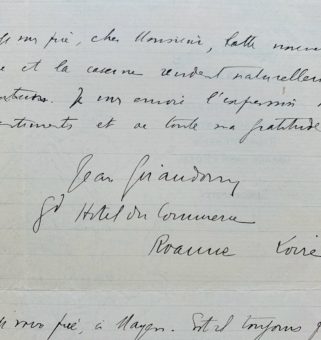 vous prie, cher Monsieur, cette
et la caserne rendent naturellem
Je vous envoie l'expression
sentiments et de toute ma gratitude
Jean Giraudoux
Gd Hotel du Commerce
Roanne Loire
vous prie, à Mayer. Est-il toujours